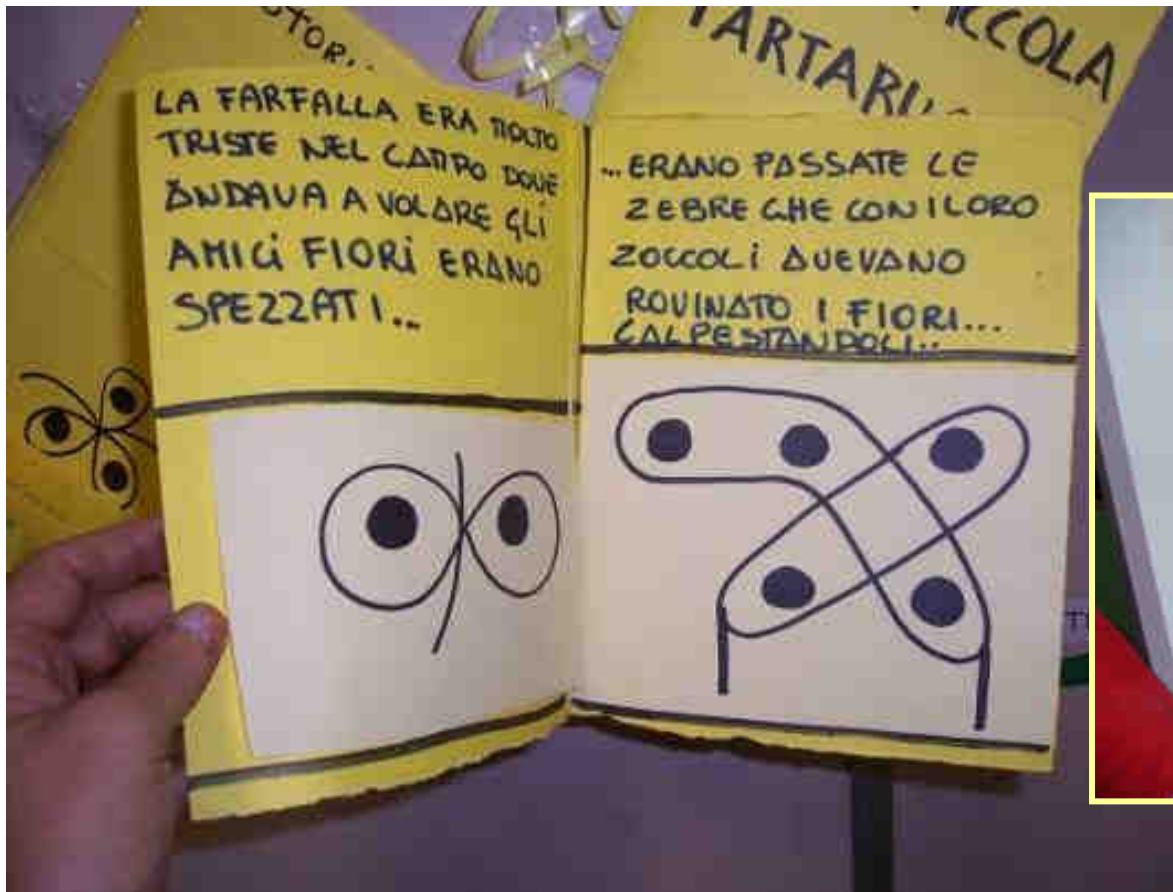 TOR...
PICCOLA
TARTARU...
LA FARFALLA ERA MOLTO
TRISTE NEL CAMPO DOVE
ANDAVA A VOLARE GLI
AMICI FIORI ERANO
SPEZZATI...
...ERANO PASSATE LE
ZEBRE CHE CON I LORO
ZOCCOLI AVEVANO
ROVINATO I FIORI...
CALPESTANDOLI...